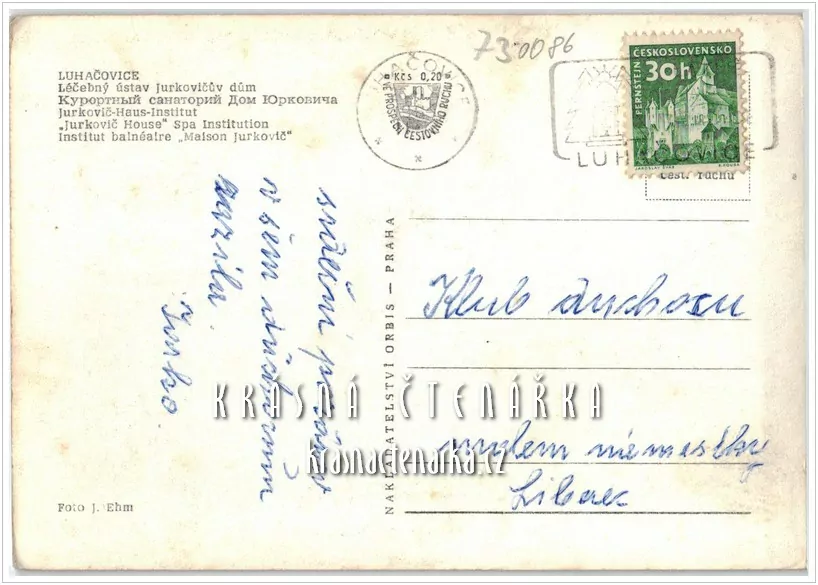 LUHAČOVICE
Léčebný ústav Jurkovičův dům
Курортный санаторий Дом Юрковича
Jurkovič-Haus-Institut
„Jurkovič House" Spa Institution
Institut balnéaire „Maison Jurkovič"
LUHAČOVICE
Kčs 0,20
VE PROSPĚCH CESTOVNÍHO RUCHU
7300086
ČESKOSLOVENSKO
30h
PERNŠTEJN
LUHAČOVIC
cest. ruchu
srdečný pozdrav
všem
Jurko
NAKLADATELSTVÍ ORBIS — PRAHA
Klub důchodců
náměstky
Liberec
KRÁSNÁ ČTENÁŘKA
krasnactenarka.cz
Foto J. Ehm